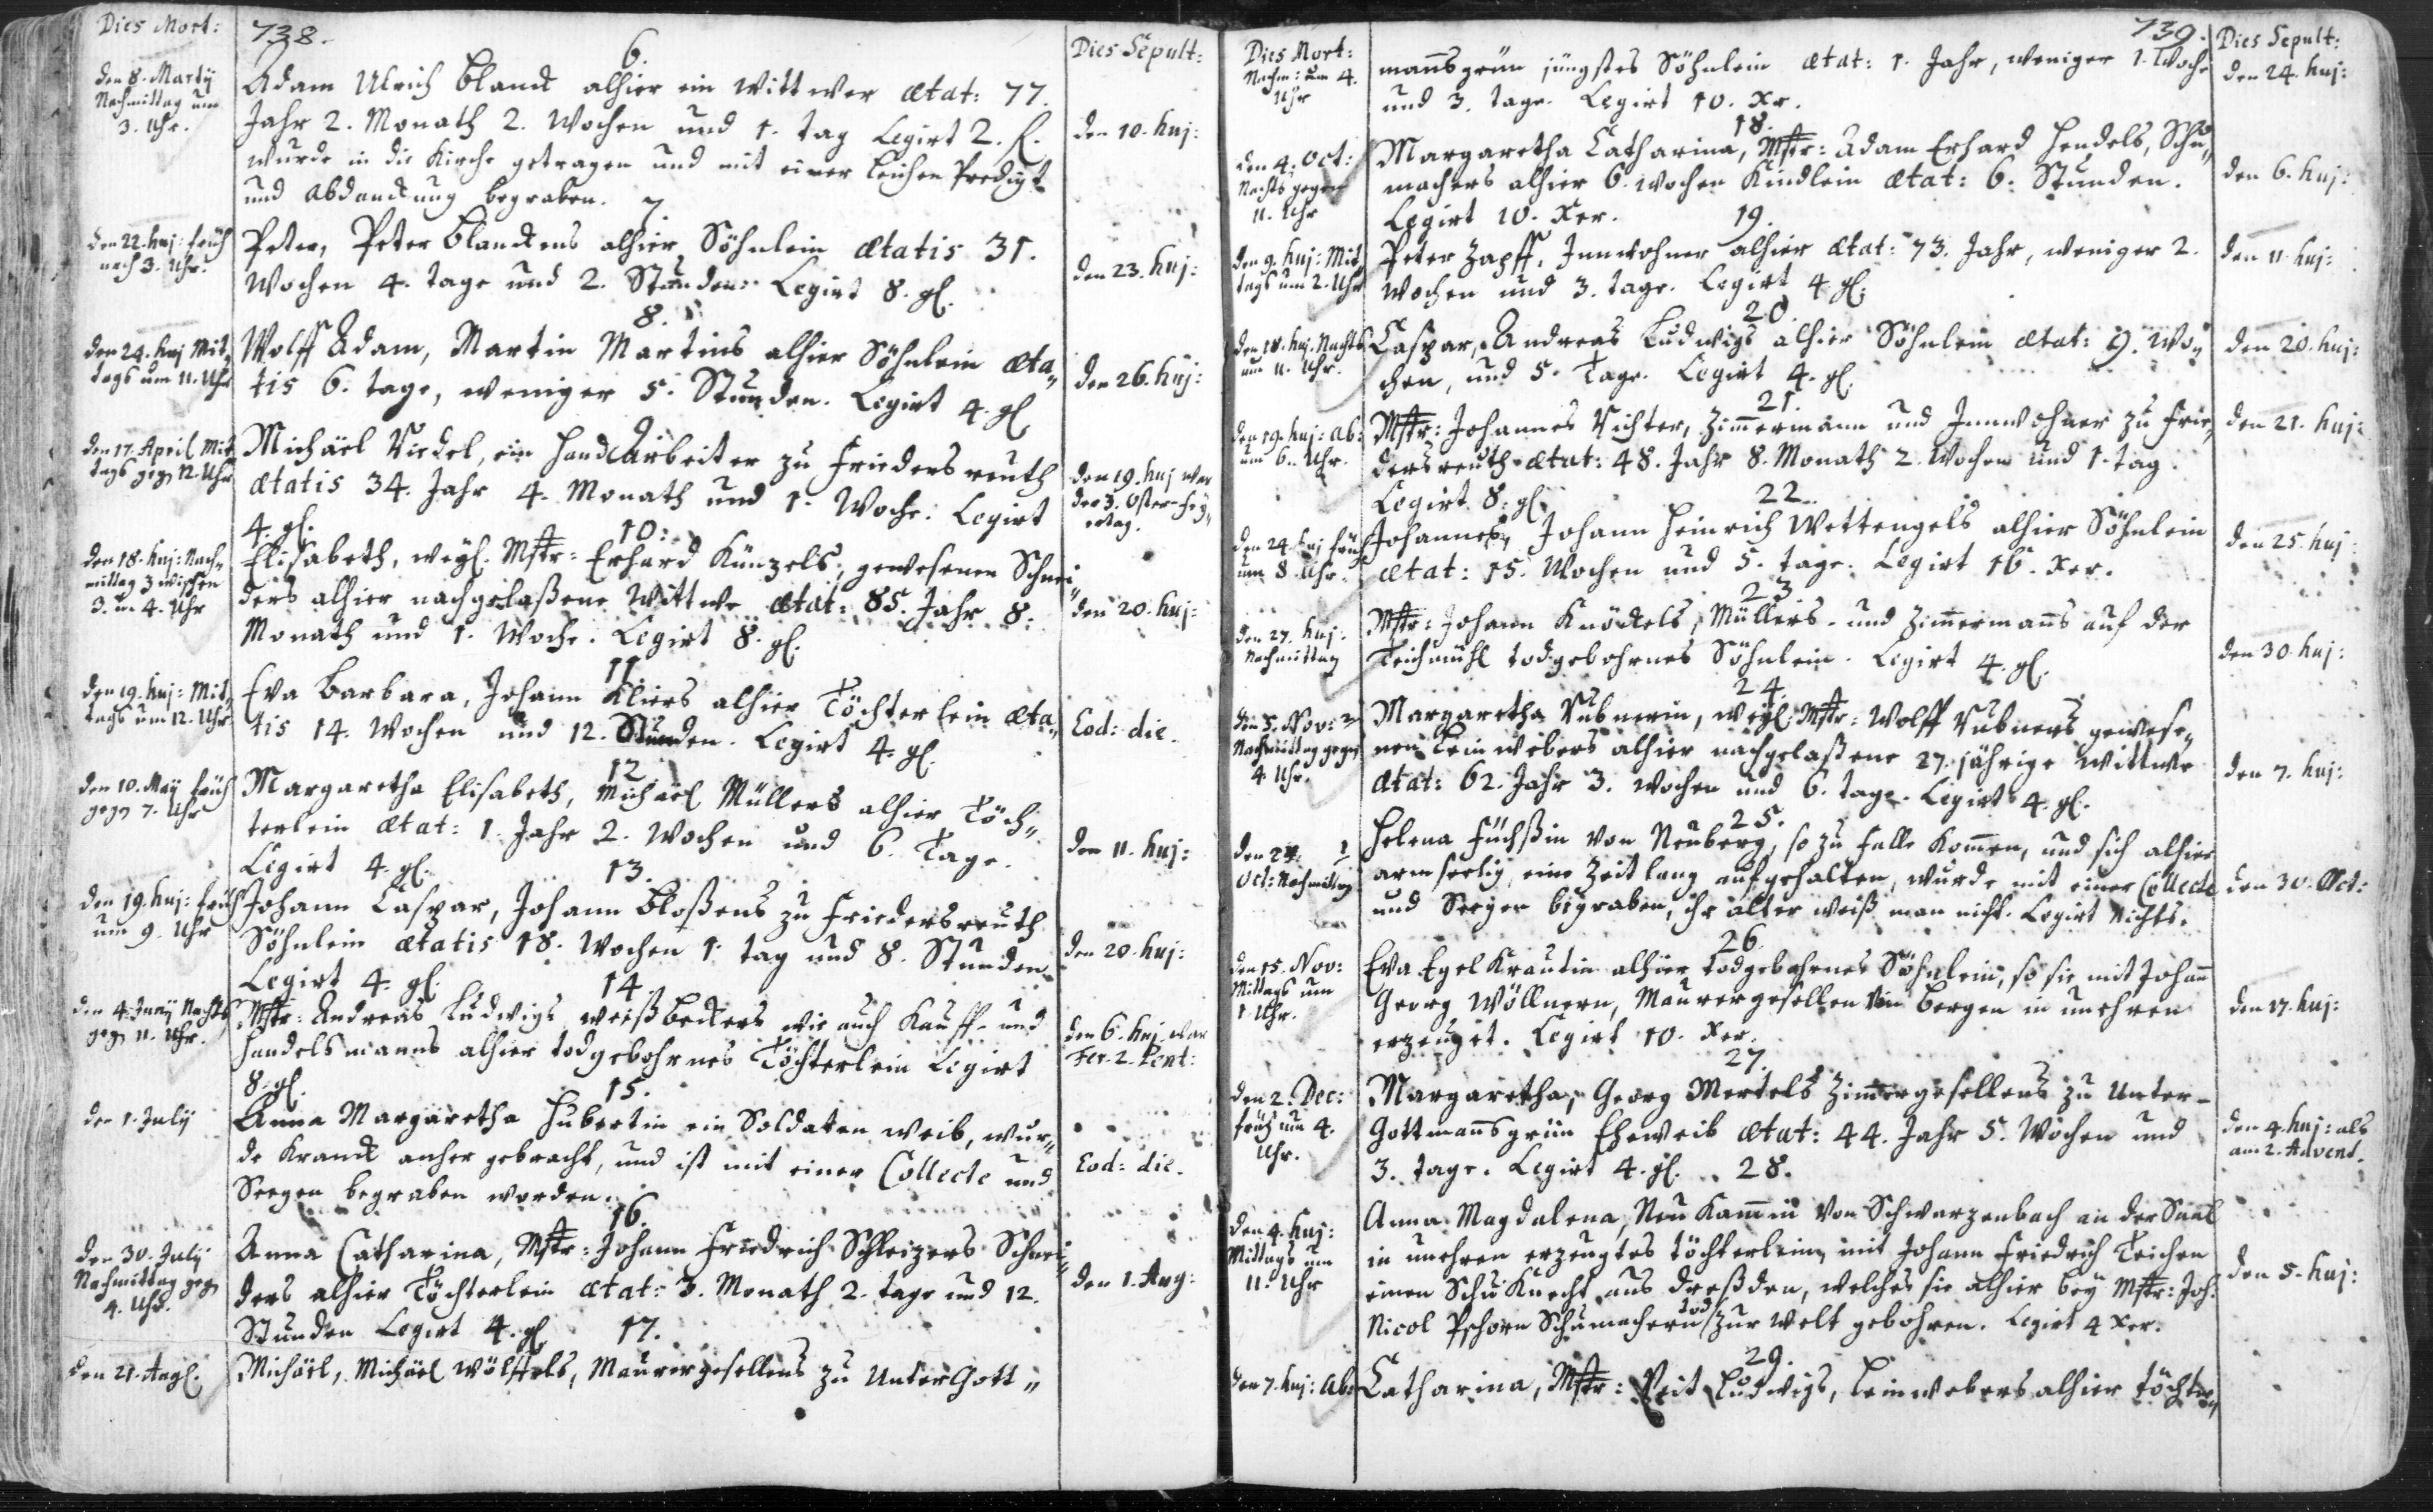 Dies Mort:
738.
Dies Sepult:
6.
den 8. Martÿ
Nachmittag um
3. Uhr.
Adam Ulrich Blanck alhier ein Wittwer ætat: 77.
Jahr 2. Monath 2. Wochen und 1. tag Legirt 2. f.
wurde in die Kirche getragen und mit einer Leichen Predigt
und Abdanckung begraben.
den 10. huj:
7.
den 22. huj: früh
nach 3. Uhr.
Peter, Peter Blanckens alhier Söhnlein ætatis 31.
Wochen 4. tage und 2. Stunden. Legirt 8. gl.
den 23. huj:
8.
den 24. huj Mit„
tags um 11. Uhr
Wolff Adam, Martin Martins alhier Söhnlein æta„
tis 6. tage, weniger 5. Stunden. Legirt 4. gl.
den 26. huj:
9.
den 17. April Mit„
tags geg 12. Uhr
Michäel Riedel, ein Hand Arbeiter zu Friedersreuth
ætatis 34. Jahr 4. Monath und 1. Woche. Legirt
4. gl.
den 19. huj war
der 3. Oster-Fey„
ertag.
10.
den 18. huj: Nach„
mittag zwischen
3. u. 4. Uhr
Elisabeth, weyl. Mstr: Erhard Künzels, gewesenen Schnei„
ders alhier nachgelaßene Wittwe ætat: 85. Jahr 8.
Monath und 1. Woche. Legirt 8. gl.
den 20. huj:
11.
den 19. huj: Mit„
tags um 12. Uhr
Eva Barbara, Johann Kliers alhier Töchterlein æta„
tis 14. Wochen und 12. Stunden. Legirt 4. gl.
Eod: die.
12
den 10. Maÿ früh
geg 7. Uhr
Margaretha Elisabeth, Michäel Müllers alhier Töch„
terlein ætat: 1. Jahr 2. Wochen und 6. Tage.
Legirt 4. gl.
den 11. huj:
13.
den 19. huj: früh
um 9. Uhr
Johann Caspar, Johann Bloßens zu Friedersreuth
Söhnlein ætatis 18. Wochen 1 tag und 8. Stunden
Legirt 4. gl.
den 20. huj:
14.
den 4. Juny Nachts
geg 11. Uhr.
Mstr: Andreas Ludwigs weißbeckers wie auch Kauff- und
Handelsmanns alhier todgebohrnes Töchterlein Legirt
8. gl.
den 6. huj. war
Fer. 2. Pent:
15.
den 1. July
Anna Margaretha Hubertin ein Soldaten weib, wur„
de kranck anher gebracht, und ist mit einer Collecte und
Seegen begraben worden.
Eod: die.
16.
den 30. July
Nachmittag geg
4. Uhr.
Anna Catharina, Mstr: Johann Friedrich Schleizers Schnei„
ders alhier Töchterlein ætat: 3. Monath 2. tage und 12.
Stunden Legirt 4. gl.
den 1. Aug:
17.
den 21. Aug.
Michäel, Michäel Wölffels, Maurergesellens zu UnterGott„
Dies Mort:
739.
Dies Sepult:
Nachm: um 4.
Uhr
mannsgrün jüngstes Söhnlein ætat: 1. Jahr, weniger 1. Woche
und 3. tage. Legirt 10. Xr.
den 24. huj:
18.
den 4. Oct:
Nachts gegen
11. Uhr
Margaretha Catharina, Mstr: Adam Erhard Hendels, Schu„
machers alhier 6. Wochen Kindlein ætat: 6. Stunden.
Legirt 10. Xer.
den 6. huj:
19.
den 9. huj: Mit„
tags um 2. Uhr
Peter Zapff, Innwohner alhier ætat: 73. Jahr, weniger 2.
Wochen und 3. tage. Legirt 4. gl.
den 11. huj:
20.
den 18. huj. Nachts
um 11. Uhr.
Caspar, Andreas Ludwigs alhier Söhnlein ætat: 9. Wo„
chen, und 5. Tage. Legirt 4. gl.
den 20. huj:
21.
den 19. huj: Ab:
um 6. Uhr.
Mstr: Johannes Richter, Zimmermann und Innwohner zu Frie„
dersreuth ætat: 48. Jahr 8. Monath 2. Wochen und 1. tag.
Legirt 8. gl.
den 21. huj:
22.
den 24. huj früh
um 8. Uhr.
Johannes, Johann Heinrich Wettengels alhier Söhnlein
ætat: 15. Wochen und 5. tage. Legirt 16. Xer.
den 25. huj:
23
den 27. huj:
Nachmittag
Mstr: Johann Knöckels, Müllers- und Zimmermanns auf der
Teichmühl todgebohrnes Söhnlein. Legirt 4. gl.
den 30. huj:
24.
den 5. Nov:
Nachmittag gegen
4. Uhr.
Margaretha Rubnerin, weyl: Mstr: Wolff Rubners gewese„
nen Leinwebers alhier nachgelaßene 27. jährige Wittwe
ætat: 62. Jahr 3. Wochen und 6. tage. Legirt 4. gl.
den 7. huj:
25.
Oct: Nachmittag
Helena Füchßin von Neuberg, so zu Falle kommen, und sich alhier
armseelig, eine Zeit lang aufgehalten, wurde mit einer Collecte
und Seegen begraben, ihr alter weiß man nicht. Legirt Nichts.
den 30. Oct:
26.
den 15. Nov:
Mittags um
1. Uhr.
Eva Egelkrautin alhier todgebohrnes Söhnlein, so sie mit Johann
Georg Wöllnern, Maurergesellen von Bergen in unehren
erzeuget. Legirt 10. Xer.
den 17. huj:
27.
den 2. Dec:
früh um 4.
Uhr.
Margaretha, Georg Mertels Zimmergesellens zu Unter-
Gottmannsgrün Eheweib ætat: 44. Jahr 5. Wochen und
3. tage. Legirt 4. gl.
den 4. huj: als
am 2. Advent.
28.
den 4. huj:
Mittags um
11. Uhr
Anna Magdalena, Neukammin von Schwarzenbach an der Saal
in unehren erzeugtes töchterlein, mit Johann Friedrich Teichen
einen Schu Knecht aus Dreßden, welches sie alhier bey Mstr: Joh:
Nicol Pschorn Schumachern tod zur Welt gebohren. Legirt 4 Xer.
den 5. huj:
29.
den 7. huj: Ab:
Catharina, Mstr: Veit Ludwigs, Leinwebers alhier töchter„